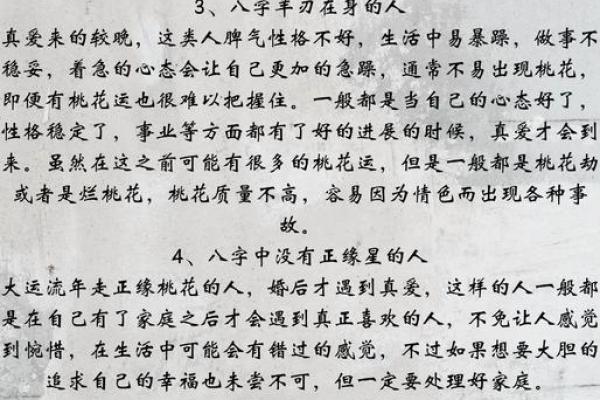 3、八字羊刃在身的人
真爱来的较晚，这类人脾气性格不好，生活中易暴躁，做事不
稳妥，着急的心态会让自己更加的急躁，通常不易出现桃花，
即便有桃花运也很难以把握住。一般都是当自己的心态好了，
性格稳定了，事业等方面都有了好的进展的时候，真爱才会到
来。虽然在这之前可能有很多的桃花运，但是一般都是桃花劫
或者是烂桃花，桃花质量不高，容易因为情色而出现各种事
故。
4、八字中没有正缘星的人
大运流年走正缘桃花的人，婚后才遇到真爱，这样的人一般都
是在自己有了家庭之后才会遇到真正喜欢的人，不免让人感觉
到惋惜，在生活中可能会有错过的感觉，不过如果想要大胆的
追求自己的幸福也未尝不可，但一定要处理好家庭。